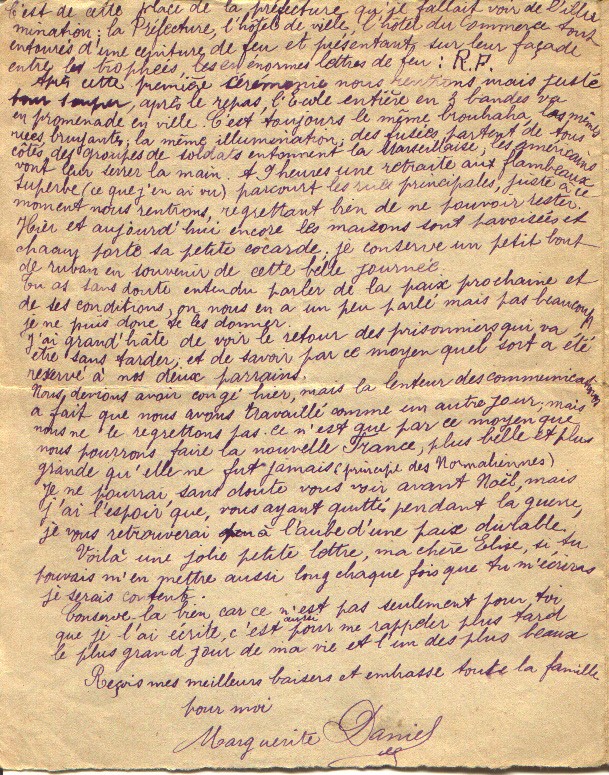 C'est de cette place de la préfecture qu'il fallait voir de l'illu
mination : la Préfecture, l'hôtel de ville, l'hôtel du Commerce sont
entourés d'une ceinture de feu et présentant sur leur façade
entre les trophées, les énormes lettres de feu : R.F.
Après cette première cérémonie nous rentrons mais juste
pour souper, après le repas, l'École entière en 3 bandes va
en promenade en ville. C'est toujours le même brouhaha, les mêmes
nuées bruyantes ; la même illumination ; des fusées partent de tous
côtés, des groupes de soldats entonnent la Marseillaise, les américains
vont leur serrer la main. A 9 heures une retraite aux flambeaux
superbe (ce que j'en ai vu) parcourt les rues principales, juste à ce
moment nous rentrons, regrettant bien de ne pouvoir rester.
Hier et aujourd'hui encore les maisons sont pavoisées et
chacun porte sa petite cocarde, je conserve un petit bout
de ruban en souvenir de cette belle journée
Tu as sans doute entendu parler de la paix prochaine et
de ses conditions, on nous en a un peu parlé mais pas beaucoup
je ne puis donc te les donner.
J'ai grand'hâte de voir le retour des prisonniers qui va
être sans tarder, et de savoir par ce moyen quel sort a été
réservé à nos deux parrains.
Nous devions avoir congé hier, mais la lenteur des communications
a fait que nous avons travaillé comme un autre jour ; mais
nous ne le regrettons pas. ce n'est que par ce moyen que
nous pourrons faire la nouvelle France, plus belle et plus
grande qu'elle ne fut jamais (principe des Normaliennes)
Je ne pourrai sans doute vous voir avant Noël, mais
j'ai l'espoir que, vous ayant quittés pendant la guerre,
je vous retrouverai à l'aube d'une paix durable.
Voilà une jolie petite lettre, ma chère Elise, si tu
pouvais m'en mettre aussi long chaque fois que tu m'écriras
je serais contente.
Conserve-la bien car ce n'est pas seulement pour toi
que je l'ai écrite, c'est aussi pour me rappeler plus tard
le plus grand jour de ma vie et l'un des plus beaux
Reçois mes meilleurs baisers et embrasse toute la famille
pour moi
Marguerite Daniel